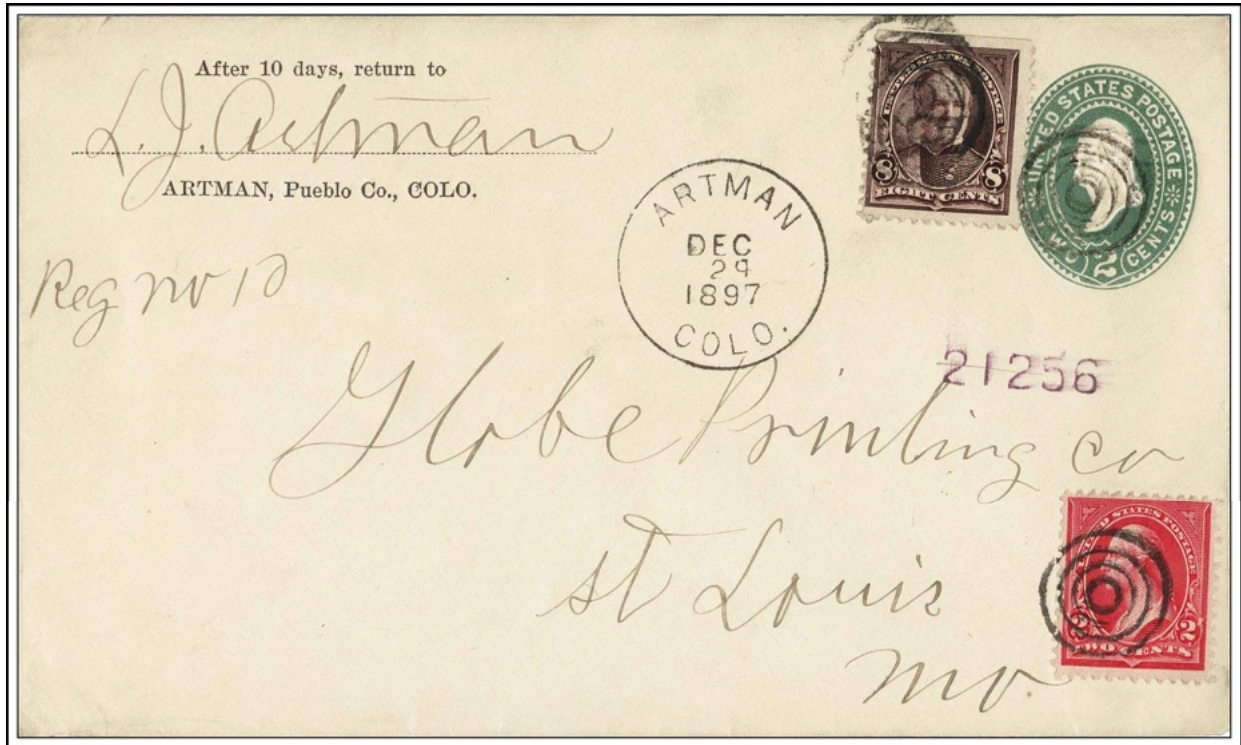 After 10 days, return to
L. J. Artman
ARTMAN, Pueblo Co., COLO.
Reg no 10
ARTMAN
DEC
29
1897
COLO.
UNITED STATES POSTAGE
8 8
EIGHT CENTS
UNITED STATES POSTAGE
TWO 2 CENTS
21256
Globe Printing co
st Louis
mo.
UNITED STATES POSTAGE
2 2
TWO CENTS